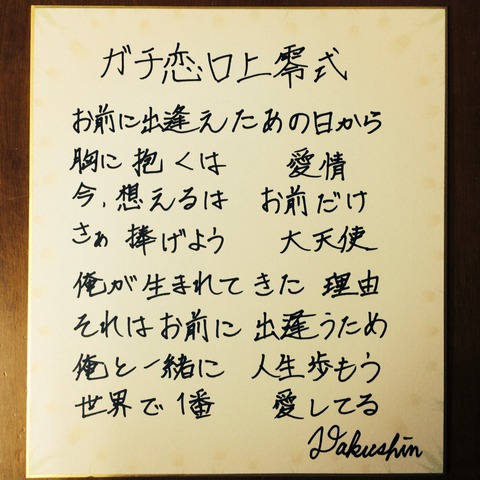 ガチ恋口上零式
お前に出逢えたあの日から
胸に抱くは 愛情
今、想えるは お前だけ
さぁ 捧げよう 大天使
俺が生まれてきた 理由
それはお前に 出逢うため
俺と一緒に 人生歩もう
世界で1番 愛してる
Yakushin